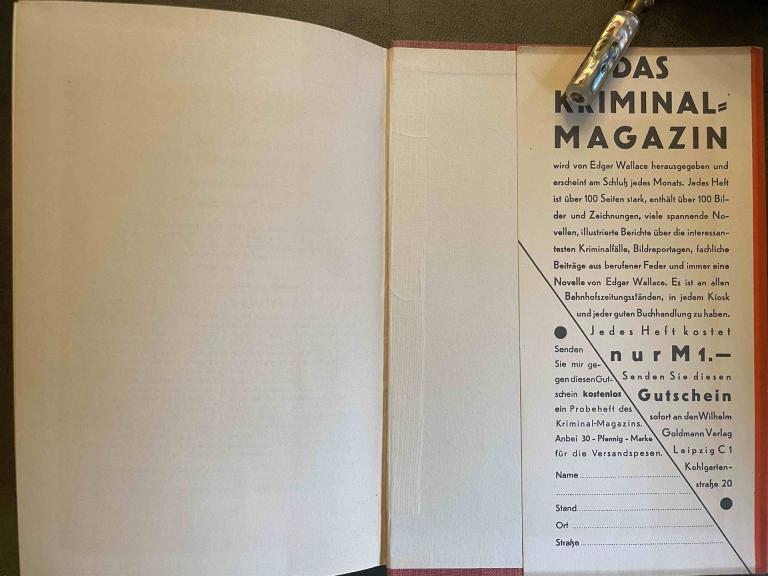 DAS
KRIMINAL=
MAGAZIN
wird von Edgar Wallace herausgegeben und
erscheint am Schluß jedes Monats. Jedes Heft
ist über 100 Seiten stark, enthält über 100 Bil-
der und Zeichnungen, viele spannende No-
vellen, illustrierte Berichte über die interessan-
testen Kriminalfälle, Bildreportagen, fachliche
Beiträge aus berufener Feder und immer eine
Novelle von Edgar Wallace. Es ist an allen
Bahnhofszeitungsständen, in jedem Kiosk
und jeder guten Buchhandlung zu haben.
Jedes Heft kostet
nur M 1.—
Senden Sie diesen
Gutschein
sofort an den Wilhelm
Goldmann Verlag
Leipzig C 1
Kohlgarten-
straße 20
Senden
Sie mir ge-
gen diesen Gut-
schein kostenlos
ein Probeheft des
Kriminal-Magazins.
Anbei 30-Pfennig-Marke
für die Versandspesen.
Name
Stand
Ort
Straße